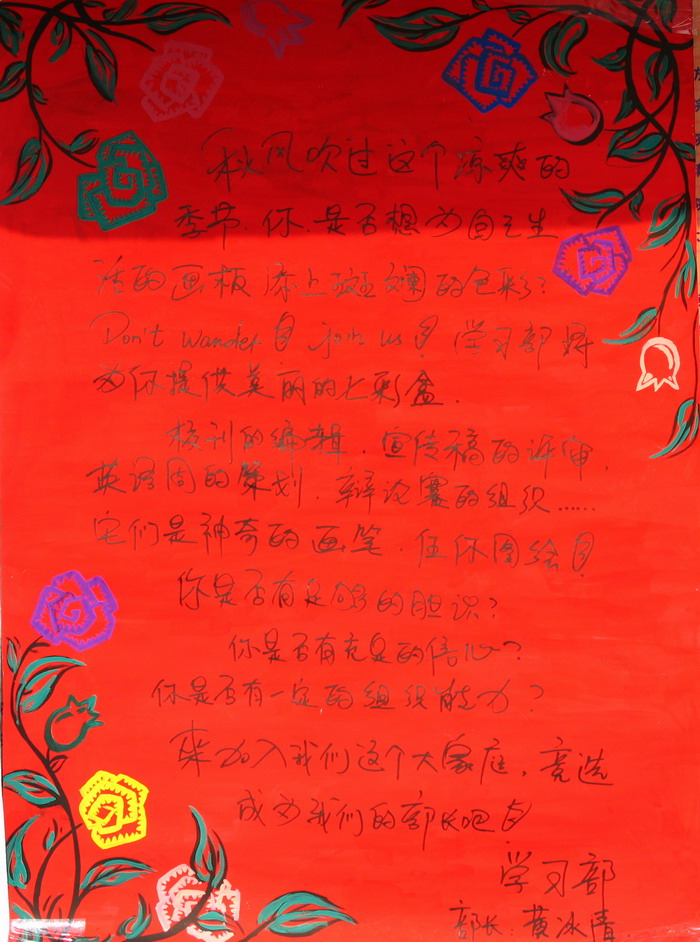 秋风吹过这个凉爽的
季节，你是否想为自己生
活的画板添上斑斓的色彩？
Don't wander！join us！学习部将
为你提供美丽的七彩盒．
校刊的编辑．宣传稿的评审，
英语周的策划．辩论赛的组织……
它们是神奇的画笔．任你图绘！
你是否有足够的胆识？
你是否有充足的信心？
你是否有一定的组织能力？
来加入我们这个大家庭，竞选
成为我们的部长吧！
学习部
部长：黄冰清